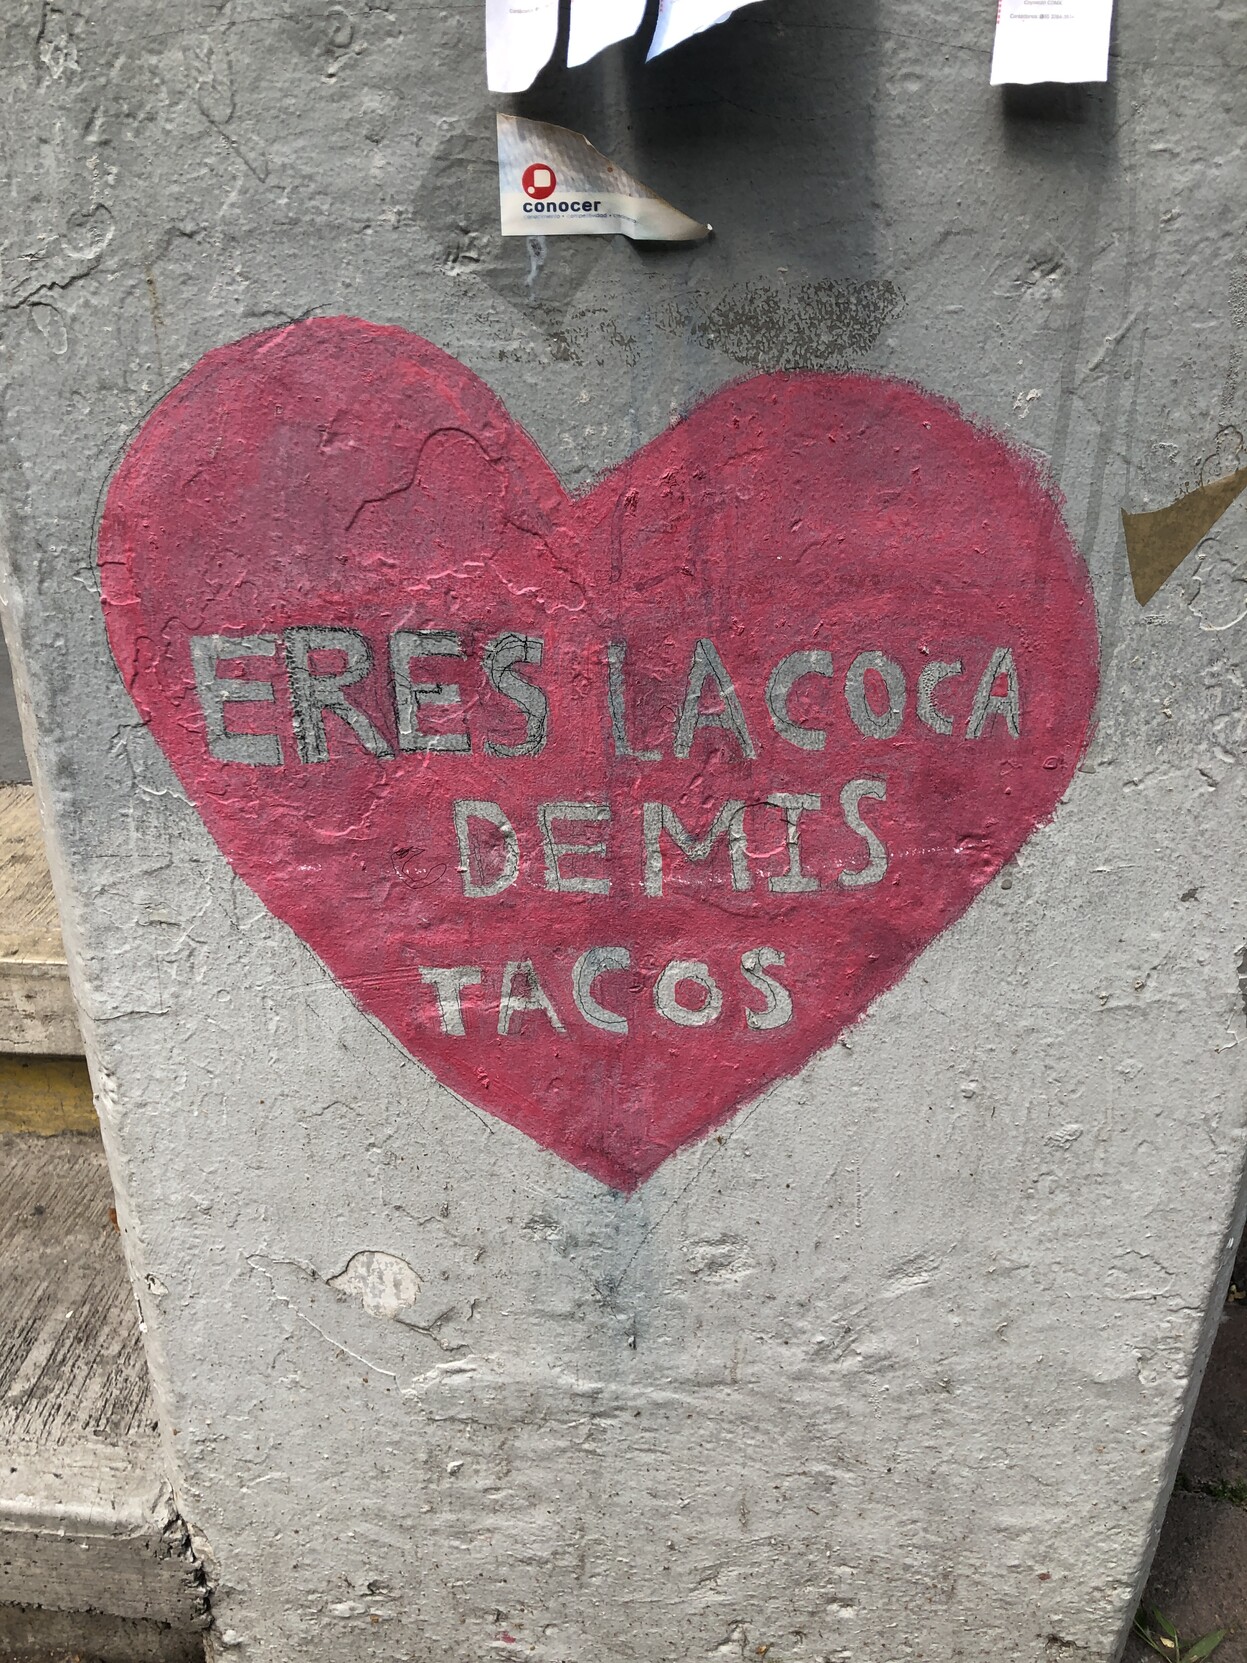 conocer
ERES LA COCA
DE MIS
TACOS